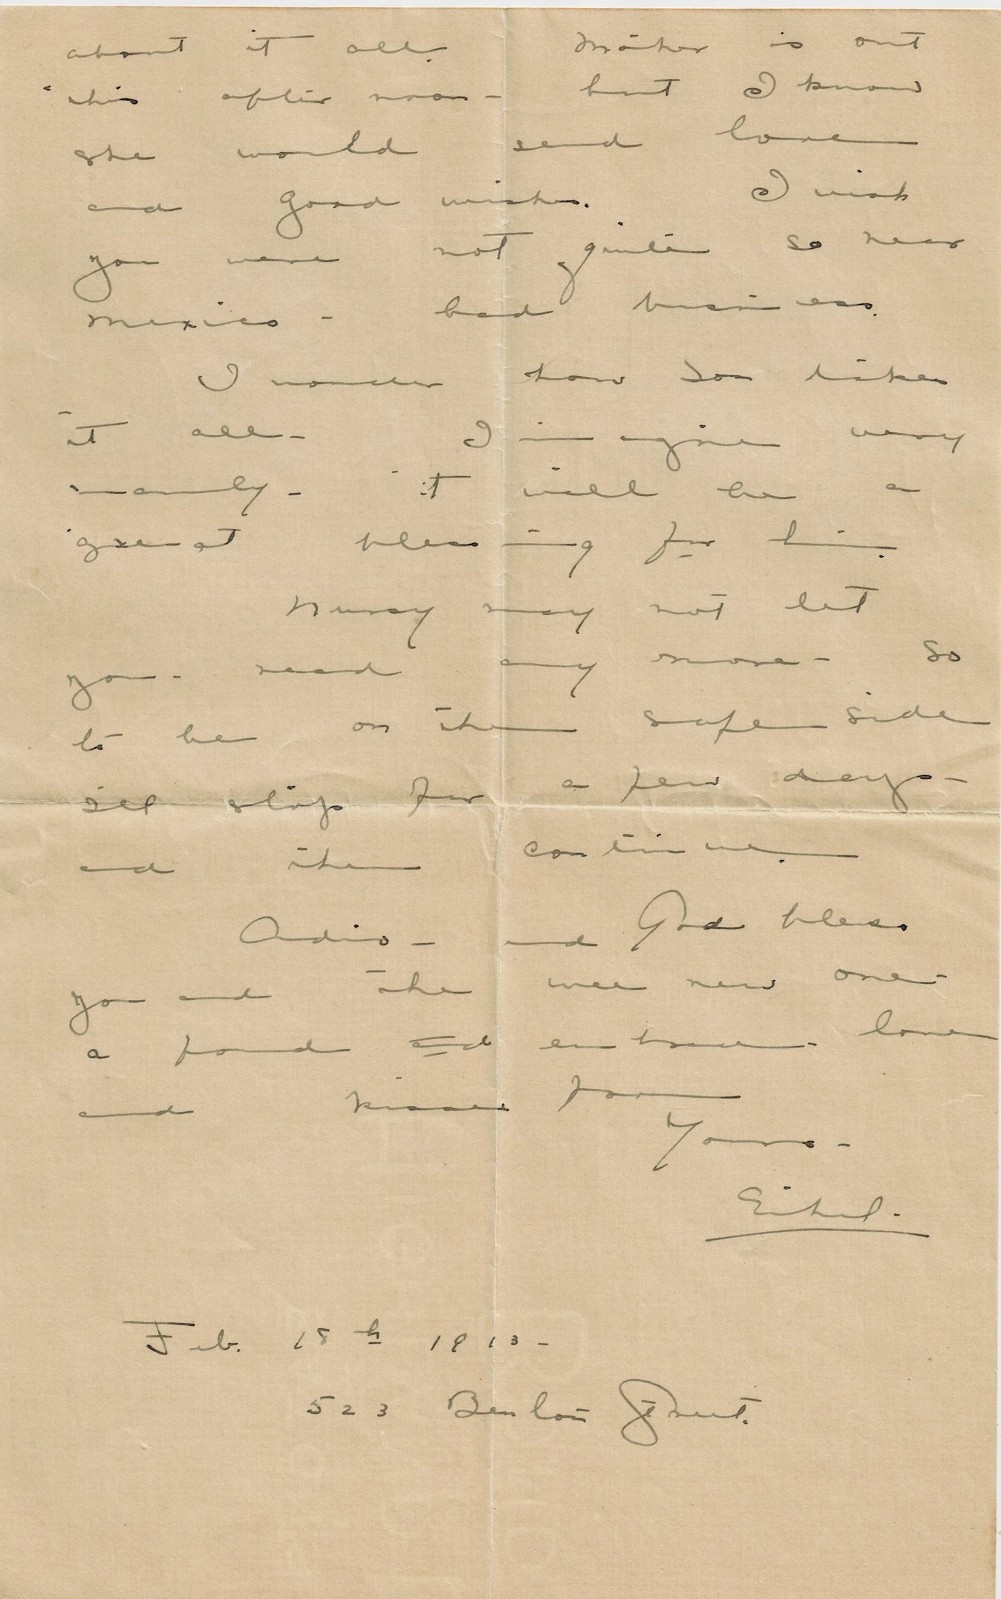 about it all. Mother is out
this after noon - but I know
she would send love
and good wishes. I wish
you were not quite so near
Mexico - bad business.
I wonder how Son likes
it all - I imagine very
manly - it will be a
great blessing for him.
Nursy may not let
you read any more - So
to be on the safe side
I'll stop for a few days -
and then continue.
Adios - and God bless
you and the wee new one -
a fond embrace - love
and kisses from
Yours -
Ethel.
Feb. 18th 1913 -
523 Benton Street.